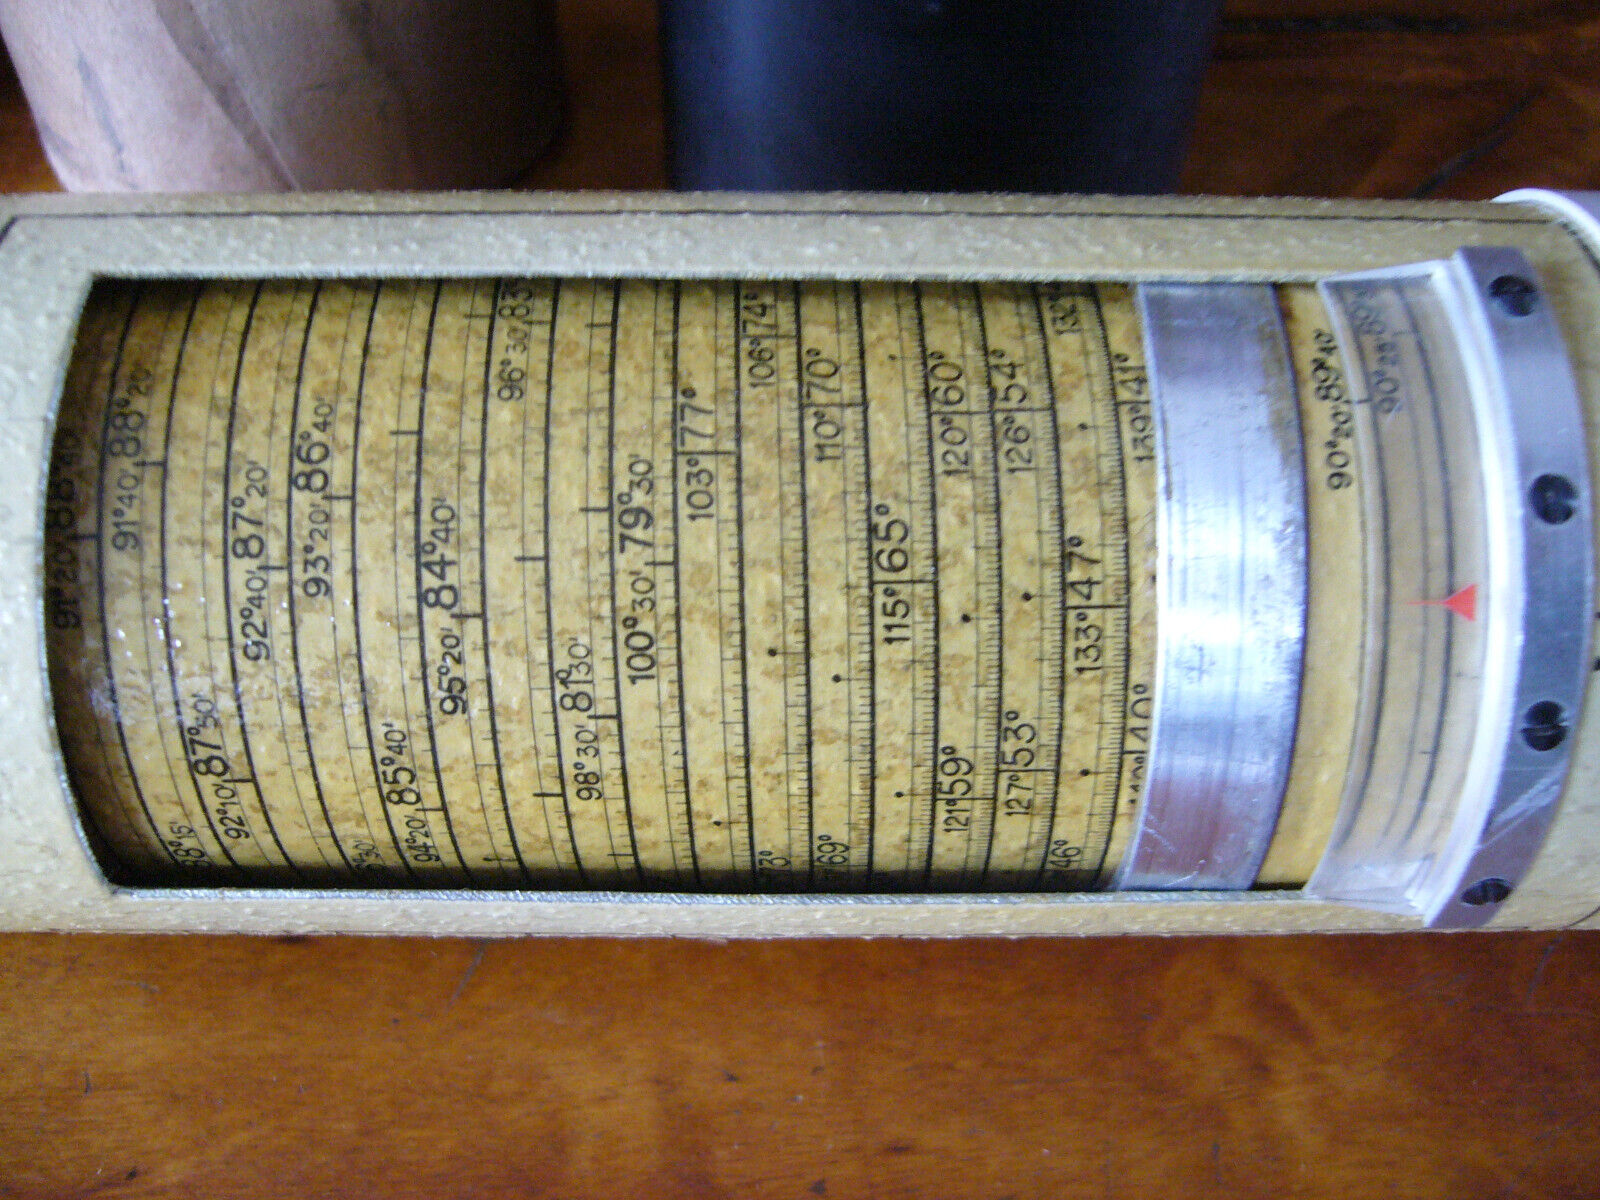 91°20' 88°40'
91°40' 88°20'
92°10' 87°50'
92°40' 87°20'
93°20' 86°40'
94°20' 85°40'
95°20' 84°40'
96°30' 83°
98°30' 81°30'
100°30' 79°30'
103° 77°
106° 74°
73°
110° 70°
69°
115° 65°
120° 60°
121° 59°
126° 54°
127° 53°
132°
133° 47°
46°
139° 41°
40°
90°20' 89°40'